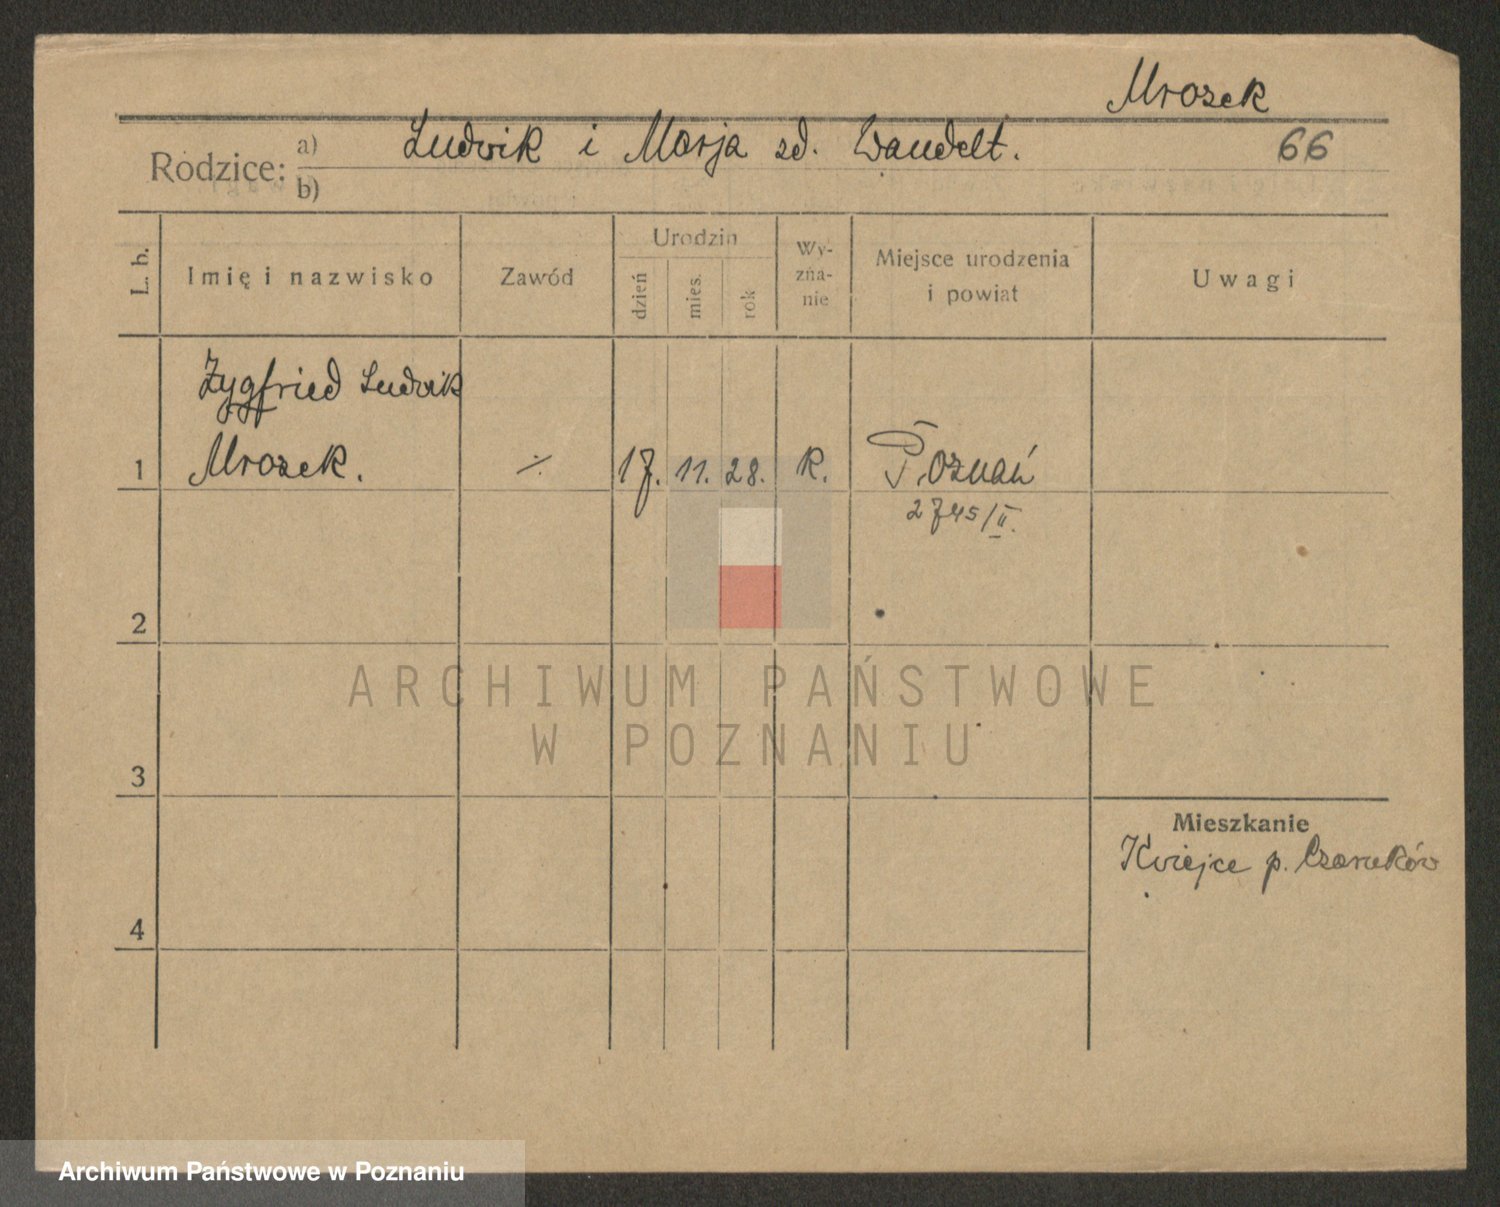 Mrozek
Rodzice: a) Ludwik i Marja zd. Wandelt. 66
b)
L. b. Imię i nazwisko Zawód Urodzin dzień mies. rok Wyznanie Miejsce urodzenia i powiat Uwagi
Zygfried Ludwik
1 Mrozek. ·/· 17. 11. 28. k. Poznań
2745/II.
2
3
Mieszkanie
Kwiejce p. Czarnków
4
ARCHIWUM PAŃSTWOWE
W POZNANIU
Archiwum Państwowe w Poznaniu